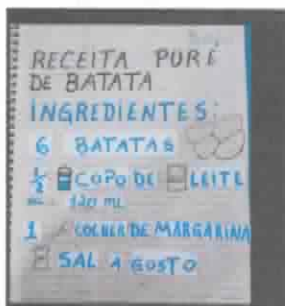 RECEITA PURÊ
DE BATATA
INGREDIENTES:
6 BATATAS
1/2 COPO DE LEITE
120 ML
1 COLHER DE MARGARINA
SAL A GOSTO